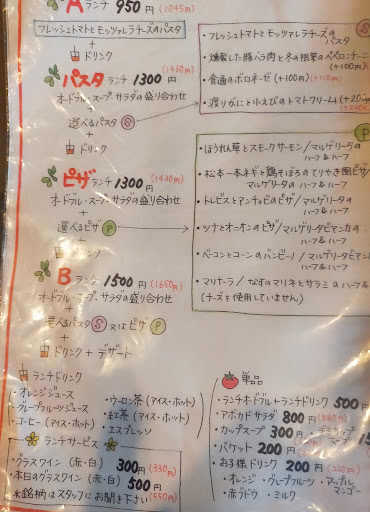 Aランチ 950円 (1045円)
フレッシュトマトとモッツァレラチーズのパスタ
+
ドリンク
パスタランチ 1300円 (1430円)
オードブル・スープ・サラダの盛り合わせ
+
選べるパスタ S
+
ドリンク
ピザランチ 1300円 (1430円)
オードブル・スープ・サラダの盛り合わせ
+
選べるピザ P
+
ドリンク
Bランチ 1500円 (1650円)
オードブル・スープ・サラダの盛り合わせ
+
選べるパスタ S 又は ピザ P
+
ドリンク + デザート
S
・フレッシュトマトとモッツァレラチーズの
パスタ
・燻製した豚バラ肉と冬の根菜のペペロンチーニ
(+100円)
・食通のボロネーゼ (+100円)
・渡りがにと小えびのトマトクリーム (+20
P
・ほうれん草とスモークサーモン/マルゲリータの
ハーフ&ハーフ
・松本一本ネギと鶏そぼろのてりやき風ピザ/
マルゲリータのハーフ&ハーフ
・トレビスとアンチョビのピザ/マルゲリータの
ハーフ&ハーフ
・ツナとオニオンのピザ/マルゲリータビアンカの
ハーフ&ハーフ
・ベーコンとコーンのバンビーノ/マルゲリータビアンカの
ハーフ&ハーフ
・マリナーラ/なすのマリネとサラミのハーフ&
(チーズを使用していません)
ランチドリンク
・オレンジジュース
・グレープフルーツジュース
・コーヒー(アイス・ホット)
・ウーロン茶(アイス・ホット)
・紅茶(アイス・ホット)
・エスプレッソ
ランチサービス
・グラスワイン(赤・白) 300円 (330円)
・本日のグラスワイン(赤・白) 500円
※銘柄はスタッフにお聞き下さい (550円)
単品
・ランチオードブル+ランチドリンク 500円
・アボカドサラダ 800円 (880円)
・カップスープ 300円
・バケット 200円
・お子様ドリンク 200円 (220円)
・オレンジ ・グレープフルーツ ・アップル
マンゴー
・赤ブドウ ・ミルク